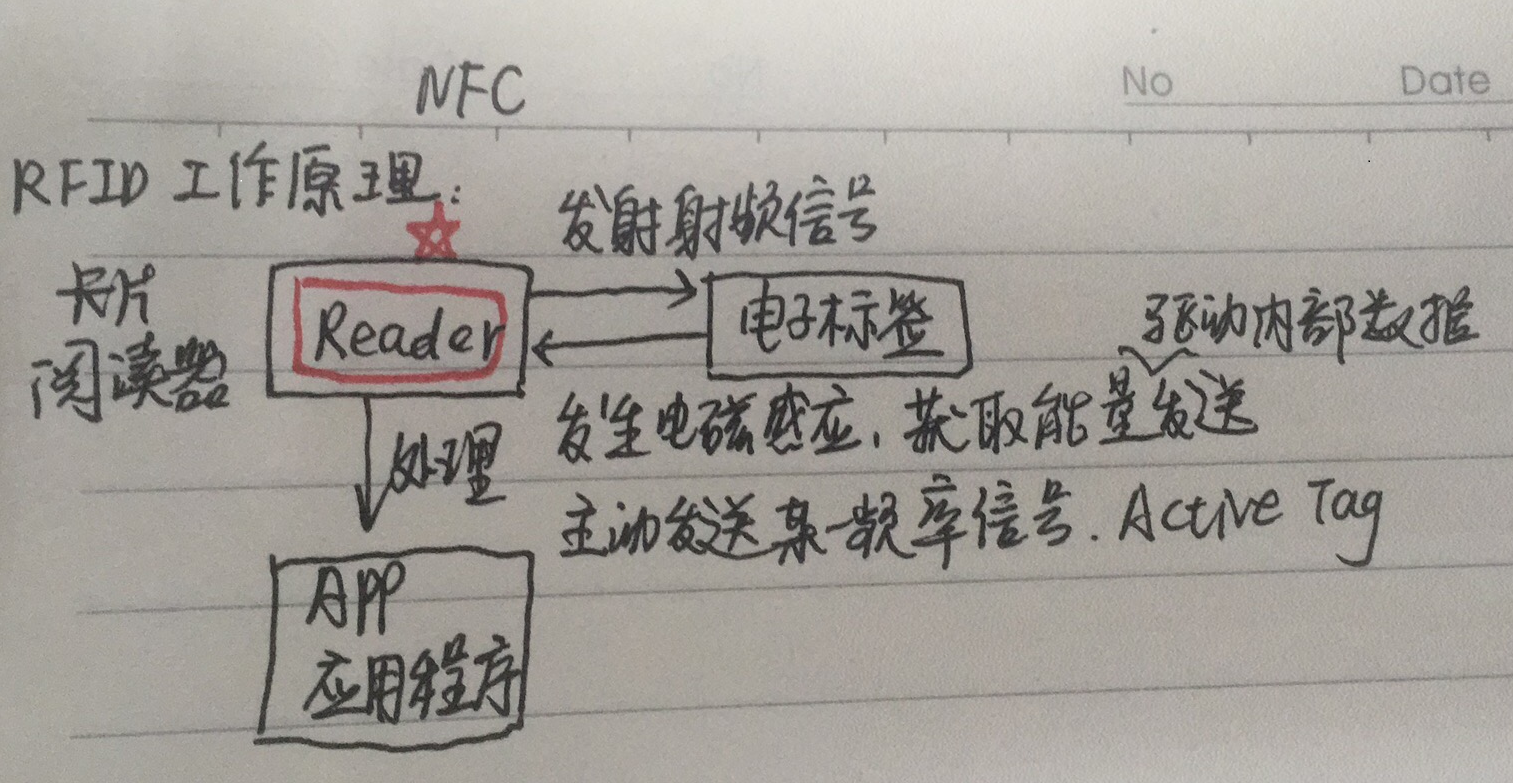 NFC
No
Date
RFID 工作原理:
发射射频信号
卡片
阅读器
Reader
电子标签
驱动内部数据
发生电磁感应,获取能量发送
处理
主动发送某一频率信号. Active Tag
APP
应用程序